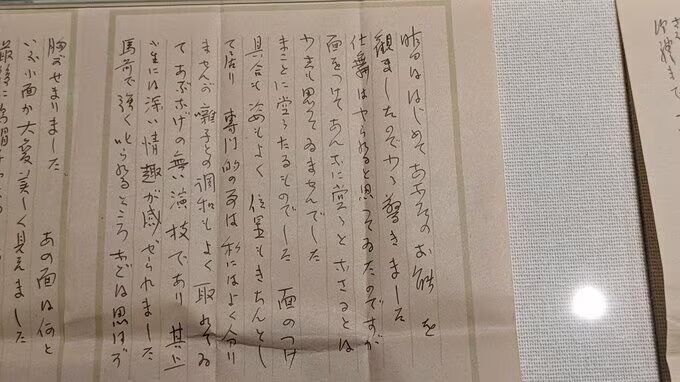 昨日はじめてあなたのお能を
観ましたのでやゝ驚きました
仕舞はやられると思つてゐたのですが
面をつけてあんなに堂々となさるとは
少しも思つてゐませんでした
まことに堂々たるものでした 面のつけ
具合も姿もよく 位置もきちんとし
て居り 専門的の事は私にはよく分り
ませんが囃子との調和もよく取れてゐ
てあぶなげの無い演技であり 其上
小生には深い情趣が感ぜられました
馬前で強く叱られるところなどは思はず
胸がせまりました あの面は何と
いふ小面か大変美しく見えました
最後に